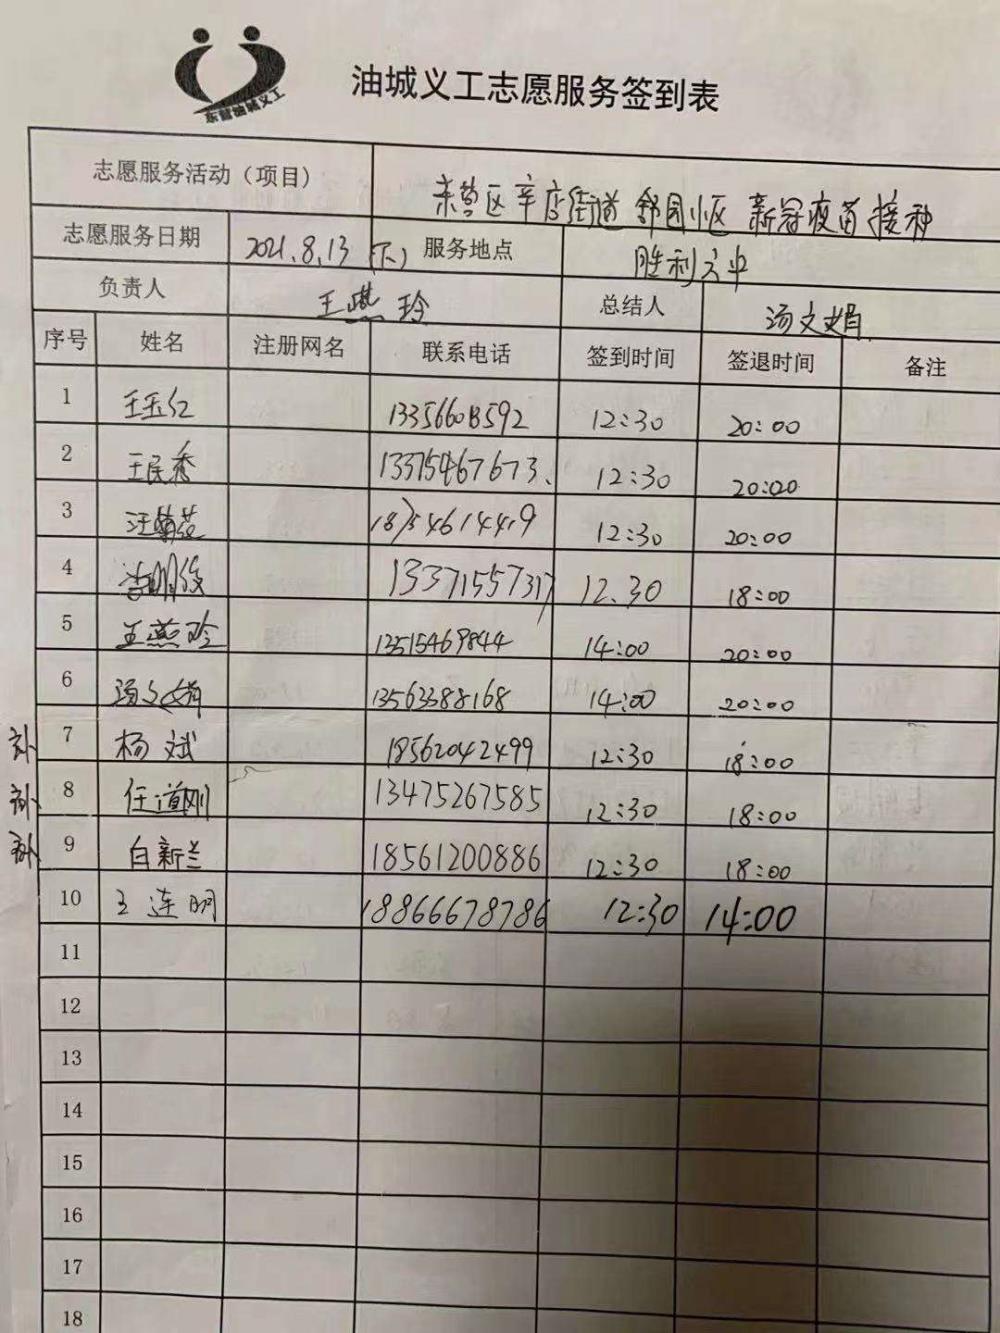 东营油城义工
油城义工志愿服务签到表
志愿服务活动（项目） 东营区辛店街道 邻园小区 新冠疫苗接种
志愿服务日期 2021.8.13（下） 服务地点 胜利六中
负责人 王燕玲 总结人 汤文娟
序号 姓名 注册网名 联系电话 签到时间 签退时间 备注
1 王玉红 12:30 20:00
2 王民秀 13375467673 12:30 20:00
3 12:30 20:00
4 李明俊 13371557317 12.30 18:00
5 王燕玲 13515469844 14:00 20:00
6 汤文娟 13563388168 14:00 20:00
补 7 杨斌 18562042499 12:30 18:00
补 8 任道刚 13475267585 12:30 18:00
补 9 白新兰 18561200886 12:30 18:00
10 王连明 18866678786 12:30 14:00
11
12
13
14
15
16
17
18